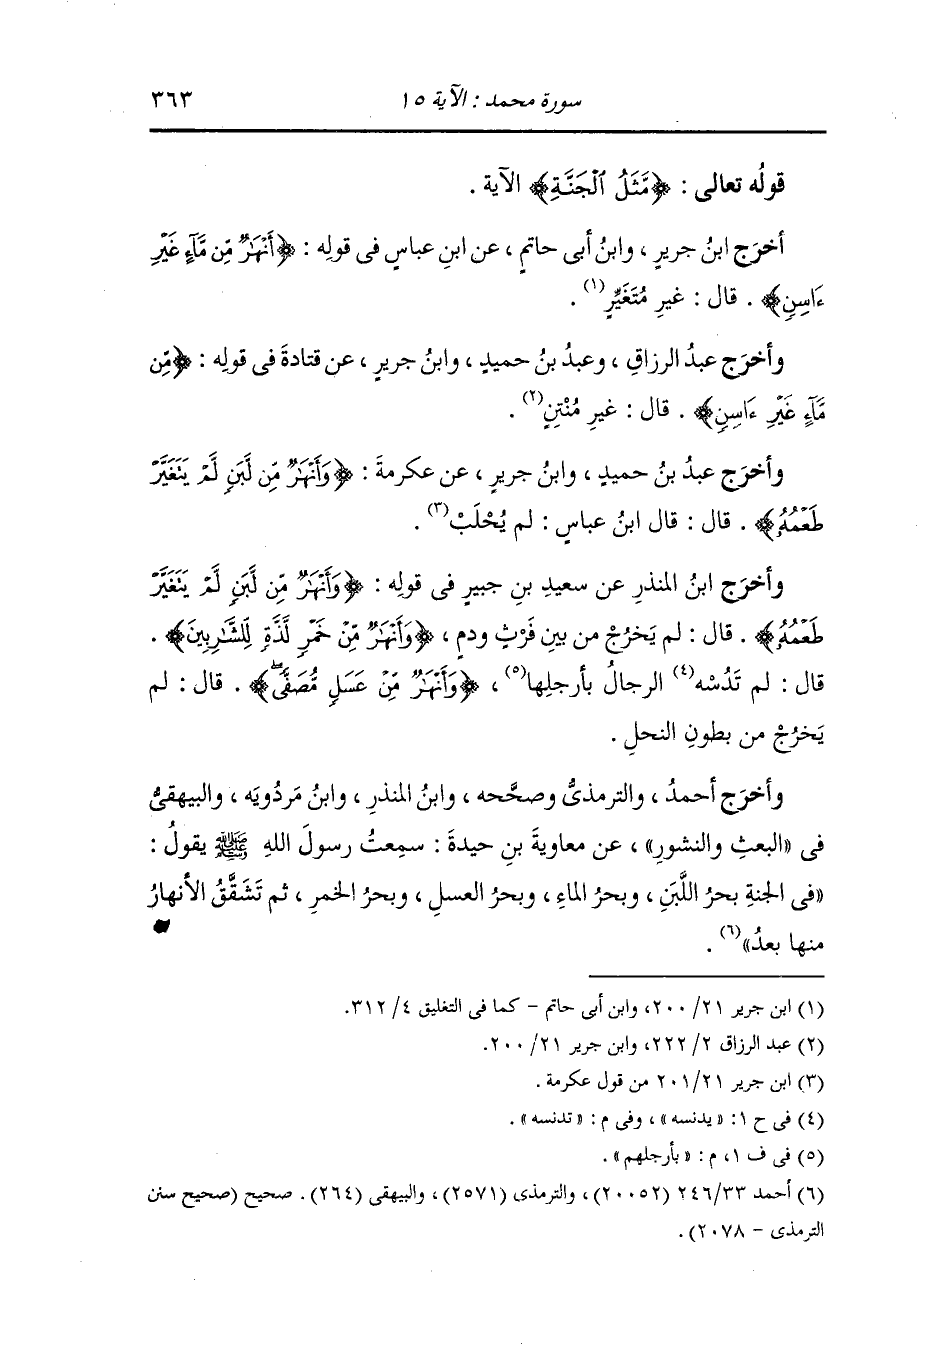 سورة محمد : الآية ١٥
٣٦٣
قولُه تعالى : ﴿مَّثَلُ ٱلْجَنَّةِ﴾ الآية .
أخرَج ابنُ جريرٍ ، وابنُ أبى حاتمٍ ، عن ابنِ عباسٍ فى قولِه : ﴿أَنْهَٰرٌ مِّن مَّآءٍ غَيْرِ
ءَاسِنٍ﴾ . قال : غيرِ مُتَغَيِّرٍ(١) .
وأخرَج عبدُ الرزاقِ ، وعبدُ بنُ حميدٍ ، وابنُ جريرٍ ، عن قتادةَ فى قولِه : ﴿مِّن
مَّآءٍ غَيْرِ ءَاسِنٍ﴾ . قال : غيرِ مُنْتِنٍ(٢) .
وأخرَج عبدُ بنُ حميدٍ ، وابنُ جريرٍ ، عن عكرمةَ : ﴿وَأَنْهَٰرٌ مِّن لَّبَنٍ لَّمْ يَتَغَيَّرْ
طَعْمُهُۥ﴾ . قال : قال ابنُ عباسٍ : لم يُحْلَبْ(٣) .
وأخرَج ابنُ المنذرِ عن سعيدِ بنِ جبيرٍ فى قولِه : ﴿وَأَنْهَٰرٌ مِّن لَّبَنٍ لَّمْ يَتَغَيَّرْ
طَعْمُهُۥ﴾ . قال : لم يَخرُجْ من بينِ فَرْثٍ ودمٍ ، ﴿وَأَنْهَٰرٌ مِّنْ خَمْرٍ لَّذَّةٍ لِّلشَّٰرِبِينَ﴾ .
قال : لم تَدُسْه(٤) الرجالُ بأرجلِها(٥) ، ﴿وَأَنْهَٰرٌ مِّنْ عَسَلٍ مُّصَفًّىۖ﴾ . قال : لم
يَخرُجْ من بطونِ النحلِ .
وأخرَج أحمدُ ، والترمذىُّ وصحَّحه ، وابنُ المنذرِ ، وابنُ مَردُويَه ، والبيهقىُّ
فى «البعثِ والنشورِ» ، عن معاويةَ بنِ حيدةَ : سمِعتُ رسولَ اللهِ ﷺ يقولُ :
«فى الجنةِ بحرُ اللَّبَنِ ، وبحرُ الماءِ ، وبحرُ العسلِ ، وبحرُ الخمرِ ، ثم تَشَقَّقُ الأنهارُ
منها بعدُ»(٦) .
(١) ابن جرير ٢١/ ٢٠٠، وابن أبى حاتم – كما فى التغليق ٤/ ٣١٢.
(٢) عبد الرزاق ٢/ ٢٢٢، وابن جرير ٢١/ ٢٠٠.
(٣) ابن جرير ٢١/ ٢٠١ من قول عكرمة .
(٤) فى ح ١: «يدنسه» ، وفى م : «تدنسه» .
(٥) فى ف ١، م : «بأرجلهم» .
(٦) أحمد ٣٣/ ٢٤٦ (٢٠٠٥٢) ، والترمذى (٢٥٧١) ، والبيهقى (٢٦٤) . صحيح (صحيح سنن
الترمذى – ٢٠٧٨) .